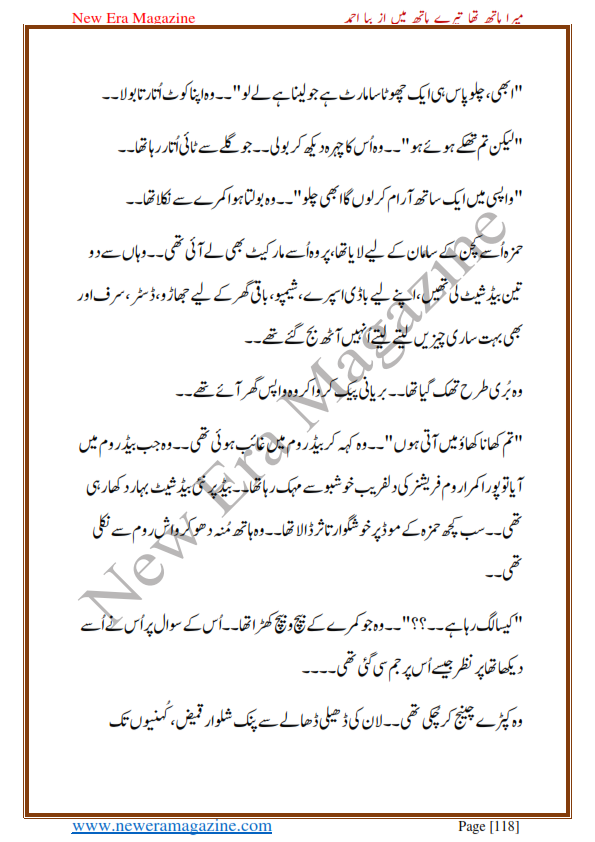 New Era Magazine میرا ہاتھ تھا تیرے ہاتھ میں از بیا احمد
"ابھی، چلو پاس ہی ایک چھوٹا سا مارٹ ہے جو لینا ہے لے لو"۔۔ وہ اپنا کوٹ اُتارتا بولا۔۔
"لیکن تم تھکے ہوئے ہو"۔۔ وہ اُس کا چہرہ دیکھ کر بولی۔۔ جو گلے سے ٹائی اُتار رہا تھا۔۔
"واپسی میں ایک ساتھ آرام کر لوں گا ابھی چلو"۔۔ وہ بولتا ہوا کمرے سے نکلا تھا۔۔
حمزہ اُسے کچن کے سامان کے لیے لایا تھا، پر وہ اُسے مارکیٹ بھی لے آئی تھی۔۔ وہاں سے دو
تین بیڈ شیٹ لی تھیں، اپنے لیے باڈی اسپرے، شیمپو، باقی گھر کے لیے جھاڑو، ڈسٹر، سرف اور
بھی بہت ساری چیزیں لیتے لیتے اُنہیں آٹھ بج گئے تھے۔۔
وہ بُری طرح تھک گیا تھا۔۔ بریانی پیک کروا کر وہ واپس گھر آئے تھے۔۔
"تم کھانا کھاؤ میں آتی ہوں"۔۔ وہ کہہ کر بیڈ روم میں غائب ہوئی تھی۔۔ وہ جب بیڈ روم میں
آیا تو پورا کمرا روم فریشنر کی دلفریب خوشبو سے مہک رہا تھا۔۔ بیڈ پر نئی بیڈ شیٹ بہار دکھا رہی
تھی۔۔ سب کچھ حمزہ کے موڈ پر خوشگوار تاثر ڈالا تھا۔۔ وہ ہاتھ مُنہ دھو کر واش روم سے نکلی
تھی۔۔
"کیسا لگ رہا ہے۔۔؟؟"۔۔ وہ جو کمرے کے بیچ و بیچ کھڑا تھا۔۔ اُس کے سوال پر اُس نے اُسے
دیکھا تھا پر نظر جیسے اُس پر جم سی گئی تھی۔۔۔۔
وہ کپڑے چینج کر چُکی تھی۔۔ لان کی ڈھیلی ڈھالے سے پنک شلوار قمیض، کُہنیوں تک
New Era Magazine
www.neweramagazine.com Page [118]